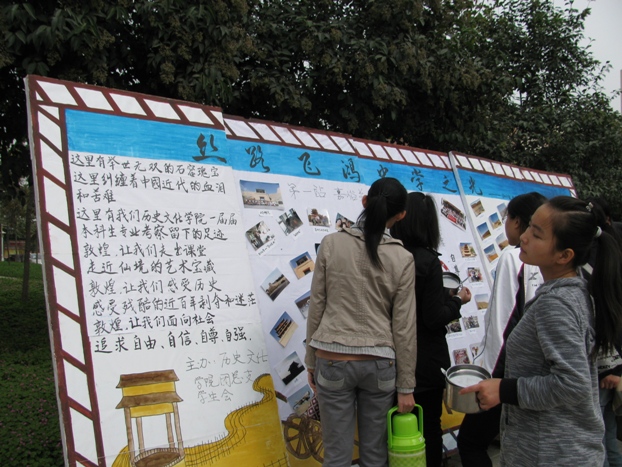 丝路飞鸿 史学之光
这里有举世无双的石窟瑰宝
这里纠缠着中国近代的血泪
和苦难
这里有我们历史文化学院一届届
本科生专业考察留下的足迹
敦煌，让我们走出课堂
走近仙境的艺术宝藏
敦煌，让我们感受历史
感受残酷的近百年割舍和迷茫
敦煌，让我们面向社会
追求自由、自信、自尊、自强。
主办：历史文化
学院团总支
学生会
第一站